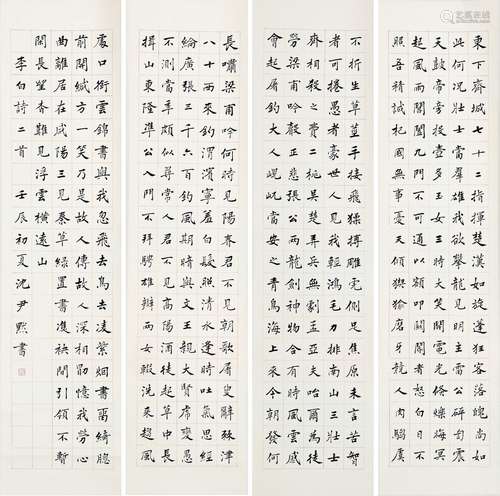 東下齊城七十二指揮楚漢如旋蓬狂客落魄尚如
此何況壯士當羣雄我欲攀龍見明主雷公砰訇震
天鼓帝旁投壺多玉女三時大笑開電光倏爍晦冥
起風雨閶闔九門不可通以額叩關閽者怒白日不
照吾精誠杞國無事憂天傾猰貐磨牙競人肉騶虞
不折生草莖手接飛猱搏彫虎側足焦原未言苦智
者可捲愚者豪世人見我輕鴻毛力排南山三壯士
齊相殺之費二桃吳楚弄兵無劇孟亞夫咍爾為徒
勞梁甫吟聲正悲張公兩龍劍神物合有時風雲感
會起屠釣大人峴屼當安之青鳥海上來今朝發何
長嘯梁甫吟何時見陽春君不見朝歌屠叟辭棘津
八十西來釣渭濱寧羞白髮照清水逢時吐氣思經
綸廣張三千六百釣風期暗與文王親大賢虎變愚
不測當年頗似尋常人君不見高陽酒徒起草中長
揖山東隆準公入門不拜騁雄辯兩女輟洗來趨風
處口銜雲錦書與我忽飛去鳥去凌紫烟書留綺牕
前開緘方一笑乃是故人傳故人深相勖憶我勞心
曲離居在咸陽三見秦草綠置書雙袂間引領不暫
閑長望杳難見浮雲橫遠山
李白詩二首 壬辰初夏沈尹默書